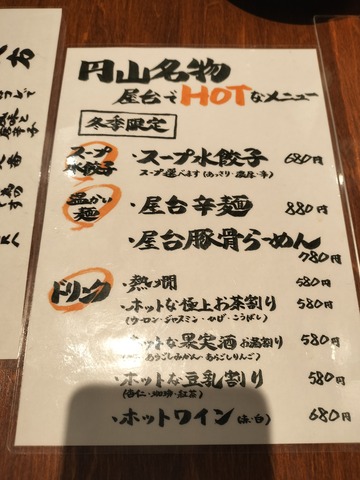 円山名物
屋台でHOTなメニュー
冬季限定
スープ水餃子
・スープ水餃子 680円
スープ選べます(あっさり・濃厚・辛)
温かい麺
・屋台辛麺 880円
・屋台豚骨らーめん
780円
ドリンク
・熱燗 580円
・ホットな極上お茶割り 580円
(ウーロン・ジャスミン・そば・こうばし)
ホットな果実酒 お湯割り 580円
あらごしみかん・あらごしりんご)
・ホットな豆乳割り 580円
(杏仁・珈琲・紅茶)
・ホットワイン(赤・白) 680円